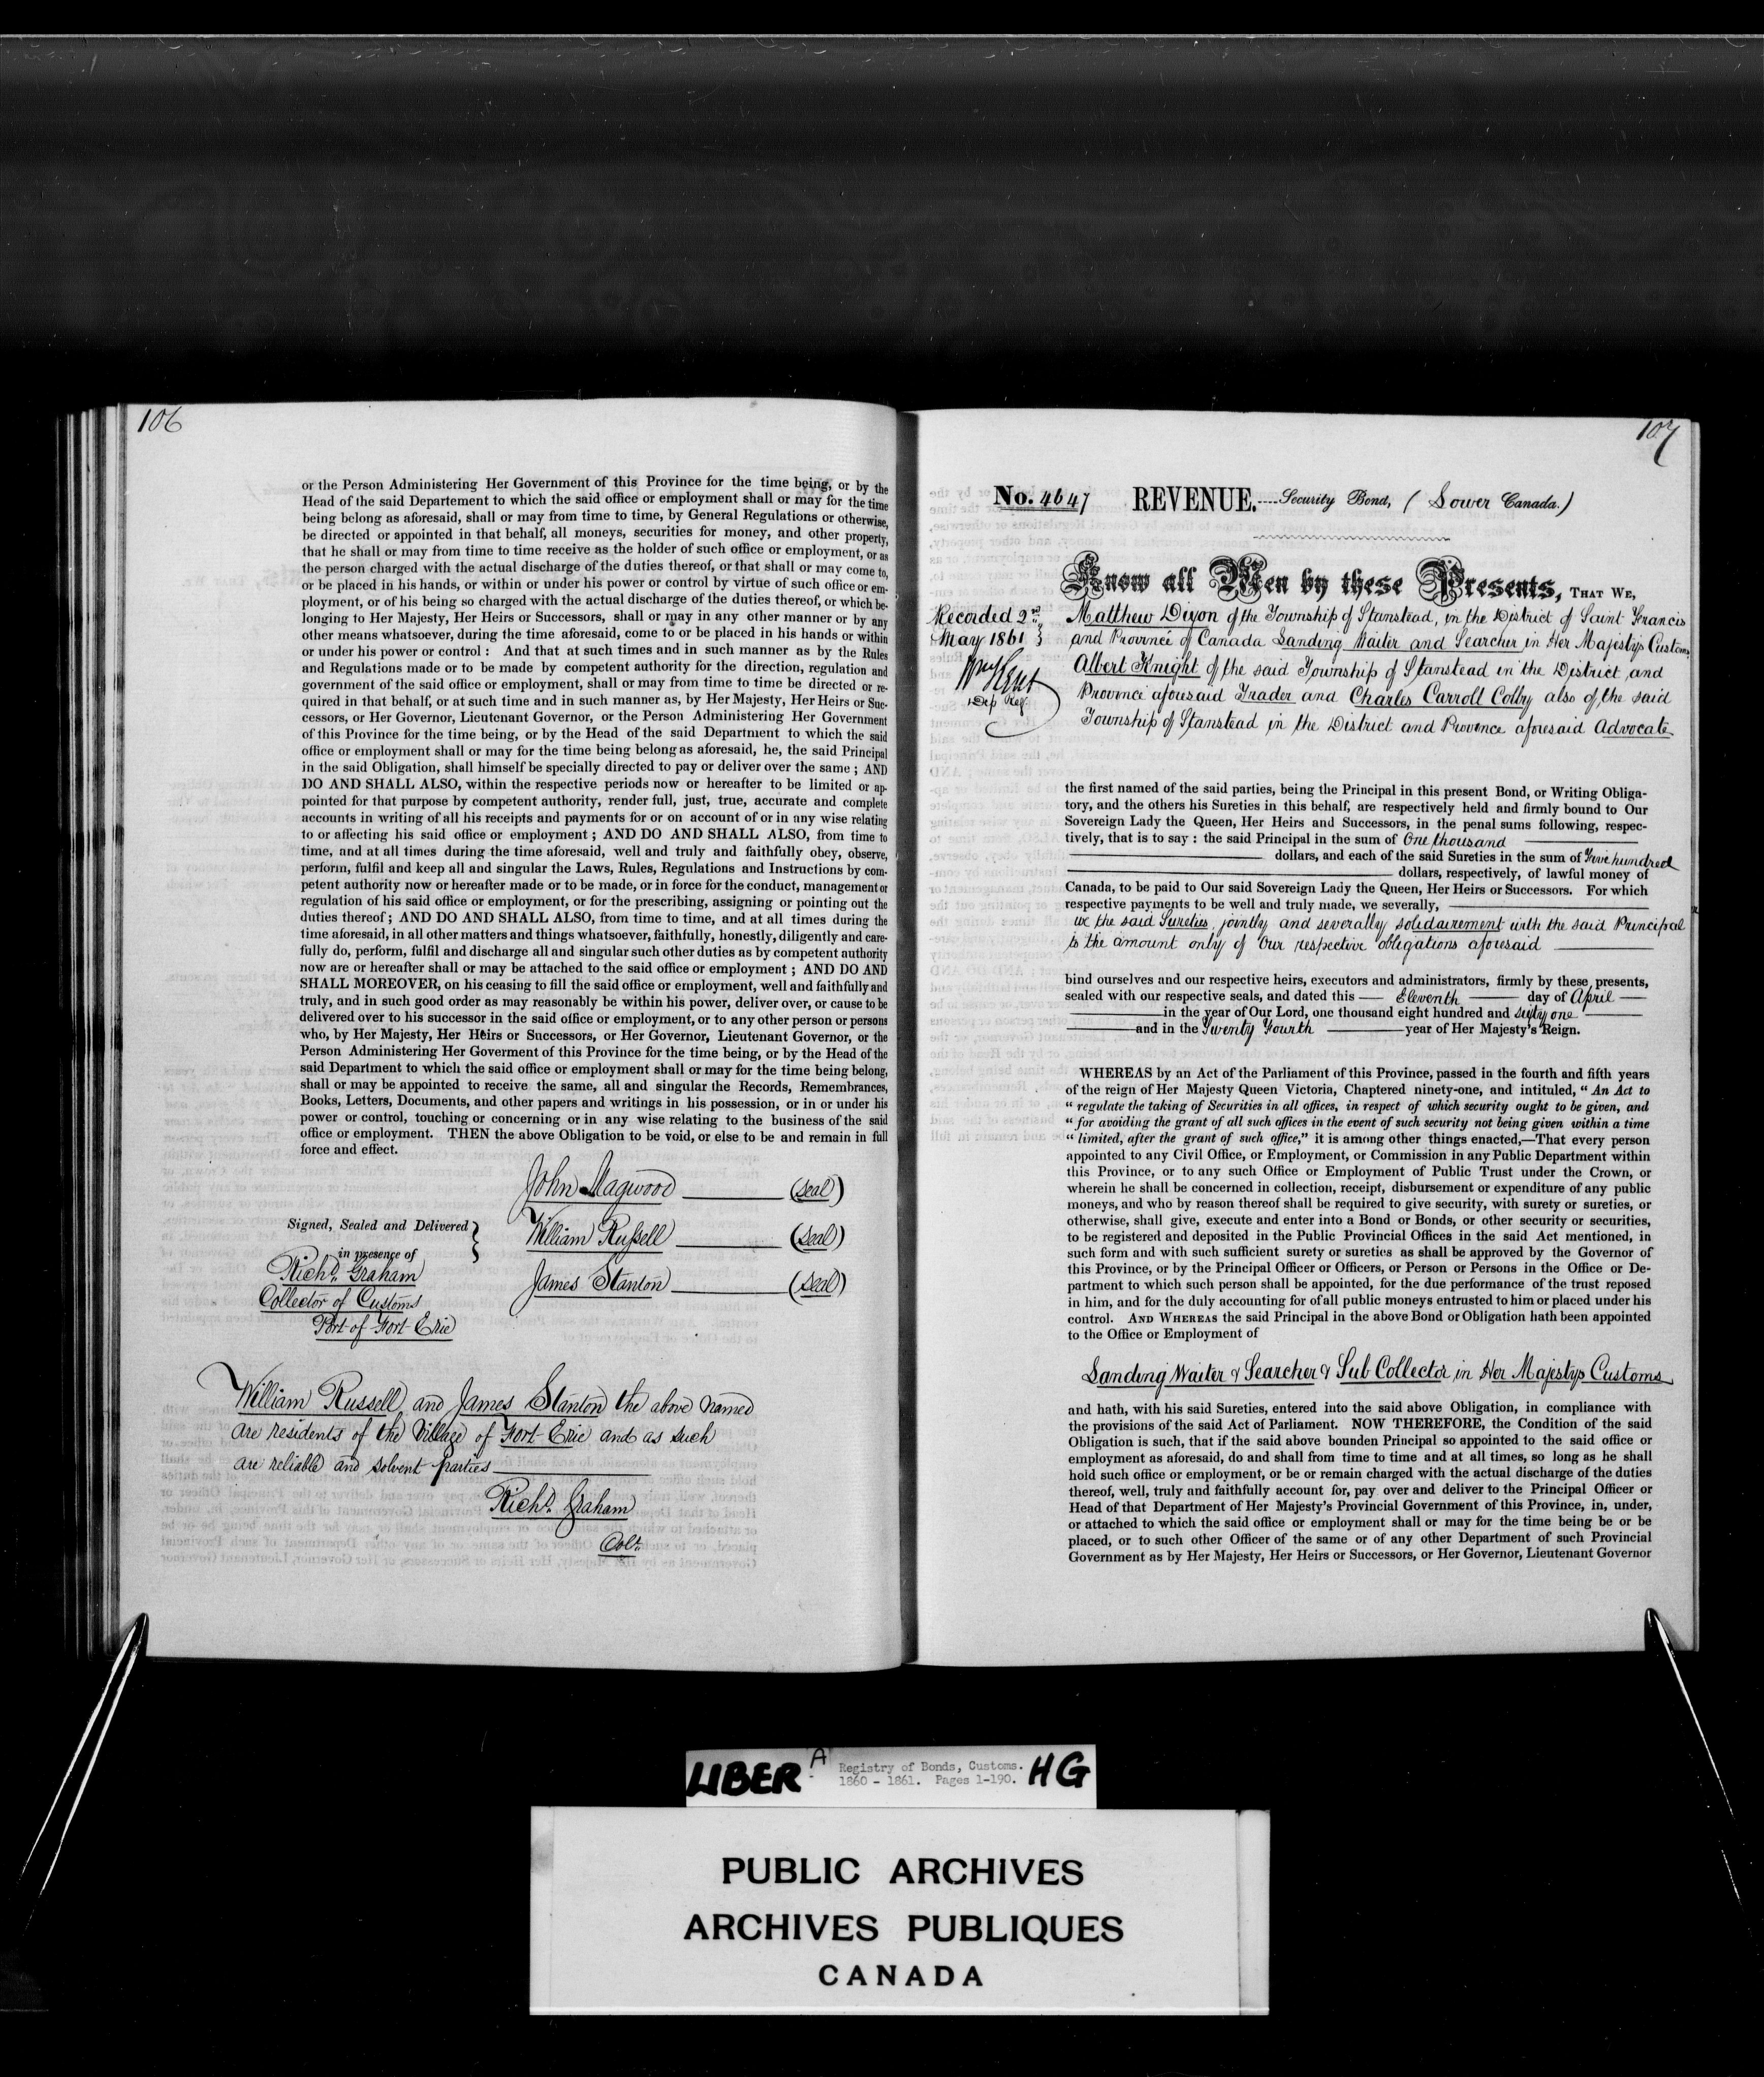 106
or the Person Administering Her Government of this Province for the time being, or by the
Head of the said Departement to which the said office or employment shall or may for the time
being belong as aforesaid, shall or may from time to time, by General Regulations or otherwise,
be directed or appointed in that behalf, all moneys, securities for money, and other property,
that he shall or may from time to time receive as the holder of such office or employment, or as
the person charged with the actual discharge of the duties thereof, or that shall or may come to,
or be placed in his hands, or within or under his power or control by virtue of such office or em-
ployment, or of his being so charged with the actual discharge of the duties thereof, or which be-
longing to Her Majesty, Her Heirs or Successors, shall or may in any other manner or by any
other means whatsoever, during the time aforesaid, come to or be placed in his hands or within
or under his power or control : And that at such times and in such manner as by the Rules
and Regulations made or to be made by competent authority for the direction, regulation and
government of the said office or employment, shall or may from time to time be directed or re-
quired in that behalf, or at such time and in such manner as, by Her Majesty, Her Heirs or Suc-
cessors, or Her Governor, Lieutenant Governor, or the Person Administering Her Government
of this Province for the time being, or by the Head of the said Department to which the said
office or employment shall or may for the time being belong as aforesaid, he, the said Principal
in the said Obligation, shall himself be specially directed to pay or deliver over the same ; AND
DO AND SHALL ALSO, within the respective periods now or hereafter to be limited or ap-
pointed for that purpose by competent authority, render full, just, true, accurate and complete
accounts in writing of all his receipts and payments for or on account of or in any wise relating
to or affecting his said office or employment ; AND DO AND SHALL ALSO, from time to
time, and at all times during the time aforesaid, well and truly and faithfully obey, observe,
perform, fulfil and keep all and singular the Laws, Rules, Regulations and Instructions by com-
petent authority now or hereafter made or to be made, or in force for the conduct, management or
regulation of his said office or employment, or for the prescribing, assigning or pointing out the
duties thereof ; AND DO AND SHALL ALSO, from time to time, and at all times during the
time aforesaid, in all other matters and things whatsoever, faithfully, honestly, diligently and care-
fully do, perform, fulfil and discharge all and singular such other duties as by competent authority
now are or hereafter shall or may be attached to the said office or employment ; AND DO AND
SHALL MOREOVER, on his ceasing to fill the said office or employment, well and faithfully and
truly, and in such good order as may reasonably be within his power, deliver over, or cause to be
delivered over to his successor in the said office or employment, or to any other person or persons
who, by Her Majesty, Her Heirs or Successors, or Her Governor, Lieutenant Governor, or the
Person Administering Her Goverment of this Province for the time being, or by the Head of the
said Department to which the said office or employment shall or may for the time being belong,
shall or may be appointed to receive the same, all and singular the Records, Remembrances,
Books, Letters, Documents, and other papers and writings in his possession, or in or under his
power or control, touching or concerning or in any wise relating to the business of the said
office or employment. THEN the above Obligation to be void, or else to be and remain in full
force and effect.
John Magwood (seal)
Signed, Sealed and Delivered
William Russell (seal)
in presence of
Richd. Graham
James Stanton (seal)
Collector of Customs
Port of Fort Erie
William Russell, and James Stanton the above named
are residents of the Village of Fort Erie and as such
are reliable and solvent parties
Richd. Graham
Colr.
107
No. 4647 REVENUE.----Security Bond, (Lower Canada.)
Know all Men by these Presents, THAT WE,
Recorded 2nd
May 1861
Dep Reg.
Matthew Dixon of the Township of Stanstead, in the District of Saint Francis
and Province of Canada Landing Waiter and Searcher in Her Majestys Customs
Albert Knight of the said Township of Stanstead in the District and
Province aforesaid Trader and Charles Carroll Colby also of the said
Township of Stanstead in the District and Province aforesaid Advocate
the first named of the said parties, being the Principal in this present Bond, or Writing Obliga-
tory, and the others his Sureties in this behalf, are respectively held and firmly bound to Our
Sovereign Lady the Queen, Her Heirs and Successors, in the penal sums following, respec-
tively, that is to say : the said Principal in the sum of One thousand
dollars, and each of the said Sureties in the sum of Five hundred
dollars, respectively, of lawful money of
Canada, to be paid to Our said Sovereign Lady the Queen, Her Heirs or Successors. For which
respective payments to be well and truly made, we severally,
we the said Sureties, jointly and severally solidairement with the said Principal
to the amount only of our respective obligations aforesaid
bind ourselves and our respective heirs, executors and administrators, firmly by these presents,
sealed with our respective seals, and dated this Eleventh day of April
in the year of Our Lord, one thousand eight hundred and sixty one
and in the Twenty Fourth year of Her Majesty's Reign.
WHEREAS by an Act of the Parliament of this Province, passed in the fourth and fifth years
of the reign of Her Majesty Queen Victoria, Chaptered ninety-one, and intituled, " An Act to
" regulate the taking of Securities in all offices, in respect of which security ought to be given, and
" for avoiding the grant of all such offices in the event of such security not being given within a time
" limited, after the grant of such office," it is among other things enacted,—That every person
appointed to any Civil Office, or Employment, or Commission in any Public Department within
this Province, or to any such Office or Employment of Public Trust under the Crown, or
wherein he shall be concerned in collection, receipt, disbursement or expenditure of any public
moneys, and who by reason thereof shall be required to give security, with surety or sureties, or
otherwise, shall give, execute and enter into a Bond or Bonds, or other security or securities,
to be registered and deposited in the Public Provincial Offices in the said Act mentioned, in
such form and with such sufficient surety or sureties as shall be approved by the Governor of
this Province, or by the Principal Officer or Officers, or Person or Persons in the Office or De-
partment to which such person shall be appointed, for the due performance of the trust reposed
in him, and for the duly accounting for of all public moneys entrusted to him or placed under his
control. AND WHEREAS the said Principal in the above Bond or Obligation hath been appointed
to the Office or Employment of
Landing Waiter & Searcher & Sub Collector in Her Majestys Customs
and hath, with his said Sureties, entered into the said above Obligation, in compliance with
the provisions of the said Act of Parliament. NOW THEREFORE, the Condition of the said
Obligation is such, that if the said above bounden Principal so appointed to the said office or
employment as aforesaid, do and shall from time to time and at all times, so long as he shall
hold such office or employment, or be or remain charged with the actual discharge of the duties
thereof, well, truly and faithfully account for, pay over and deliver to the Principal Officer or
Head of that Department of Her Majesty's Provincial Government of this Province, in, under,
or attached to which the said office or employment shall or may for the time being be or be
placed, or to such other Officer of the same or of any other Department of such Provincial
Government as by Her Majesty, Her Heirs or Successors, or Her Governor, Lieutenant Governor
LIBER A HG
Registry of Bonds, Customs.
1860 - 1861. Pages 1-190.
PUBLIC ARCHIVES
ARCHIVES PUBLIQUES
CANADA